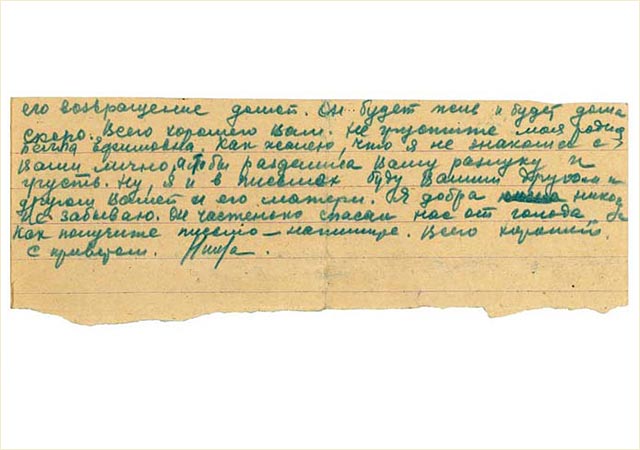 его возвращение домой. Он будет жив и будет дома
скоро. Всего хорошего Вам. Не грустите моя родная
Ефимовна. Как жалею, что я не знакома с
Вами лично, я бы разделила Вашу разлуку и
грусть. Ну, я и в письмах буду Вашим другом и
другом Вашей и его матери. Я добра никогда
не забываю. Он частенько спасал нас от голода
Как получите письмо – напишите. Всего хорошего.
С приветом. Нина.